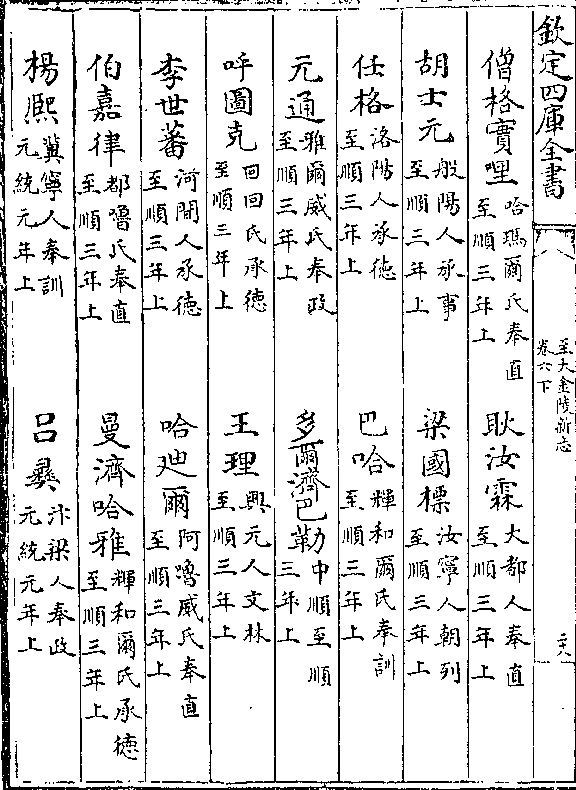 欽定四庫全書
至大金陵新志
卷六下
二六
僧格實哩哈瑪爾氏奉直至順三年上 耿汝霖大都人奉直至順三年上
胡士元般陽人承事至順三年上 梁國標汝寧人朝列至順三年上
任格洛陽人承德至順三年上 巴哈輝和爾氏奉訓至順三年上
元通雅爾威氏奉政至順三年上 多爾濟巴勒中順至順三年上
呼圖克回回氏承德至順三年上 王理興元人文林至順三年上
李世蕃河間人承德至順三年上 哈廸爾阿嚕威氏奉直至順三年上
伯嘉律都嚕氏奉直至順三年上 曼濟哈雅輝和爾氏承德至順三年上
楊熈冀寧人奉訓元統元年上 呂彞汴梁人奉政元統元年上